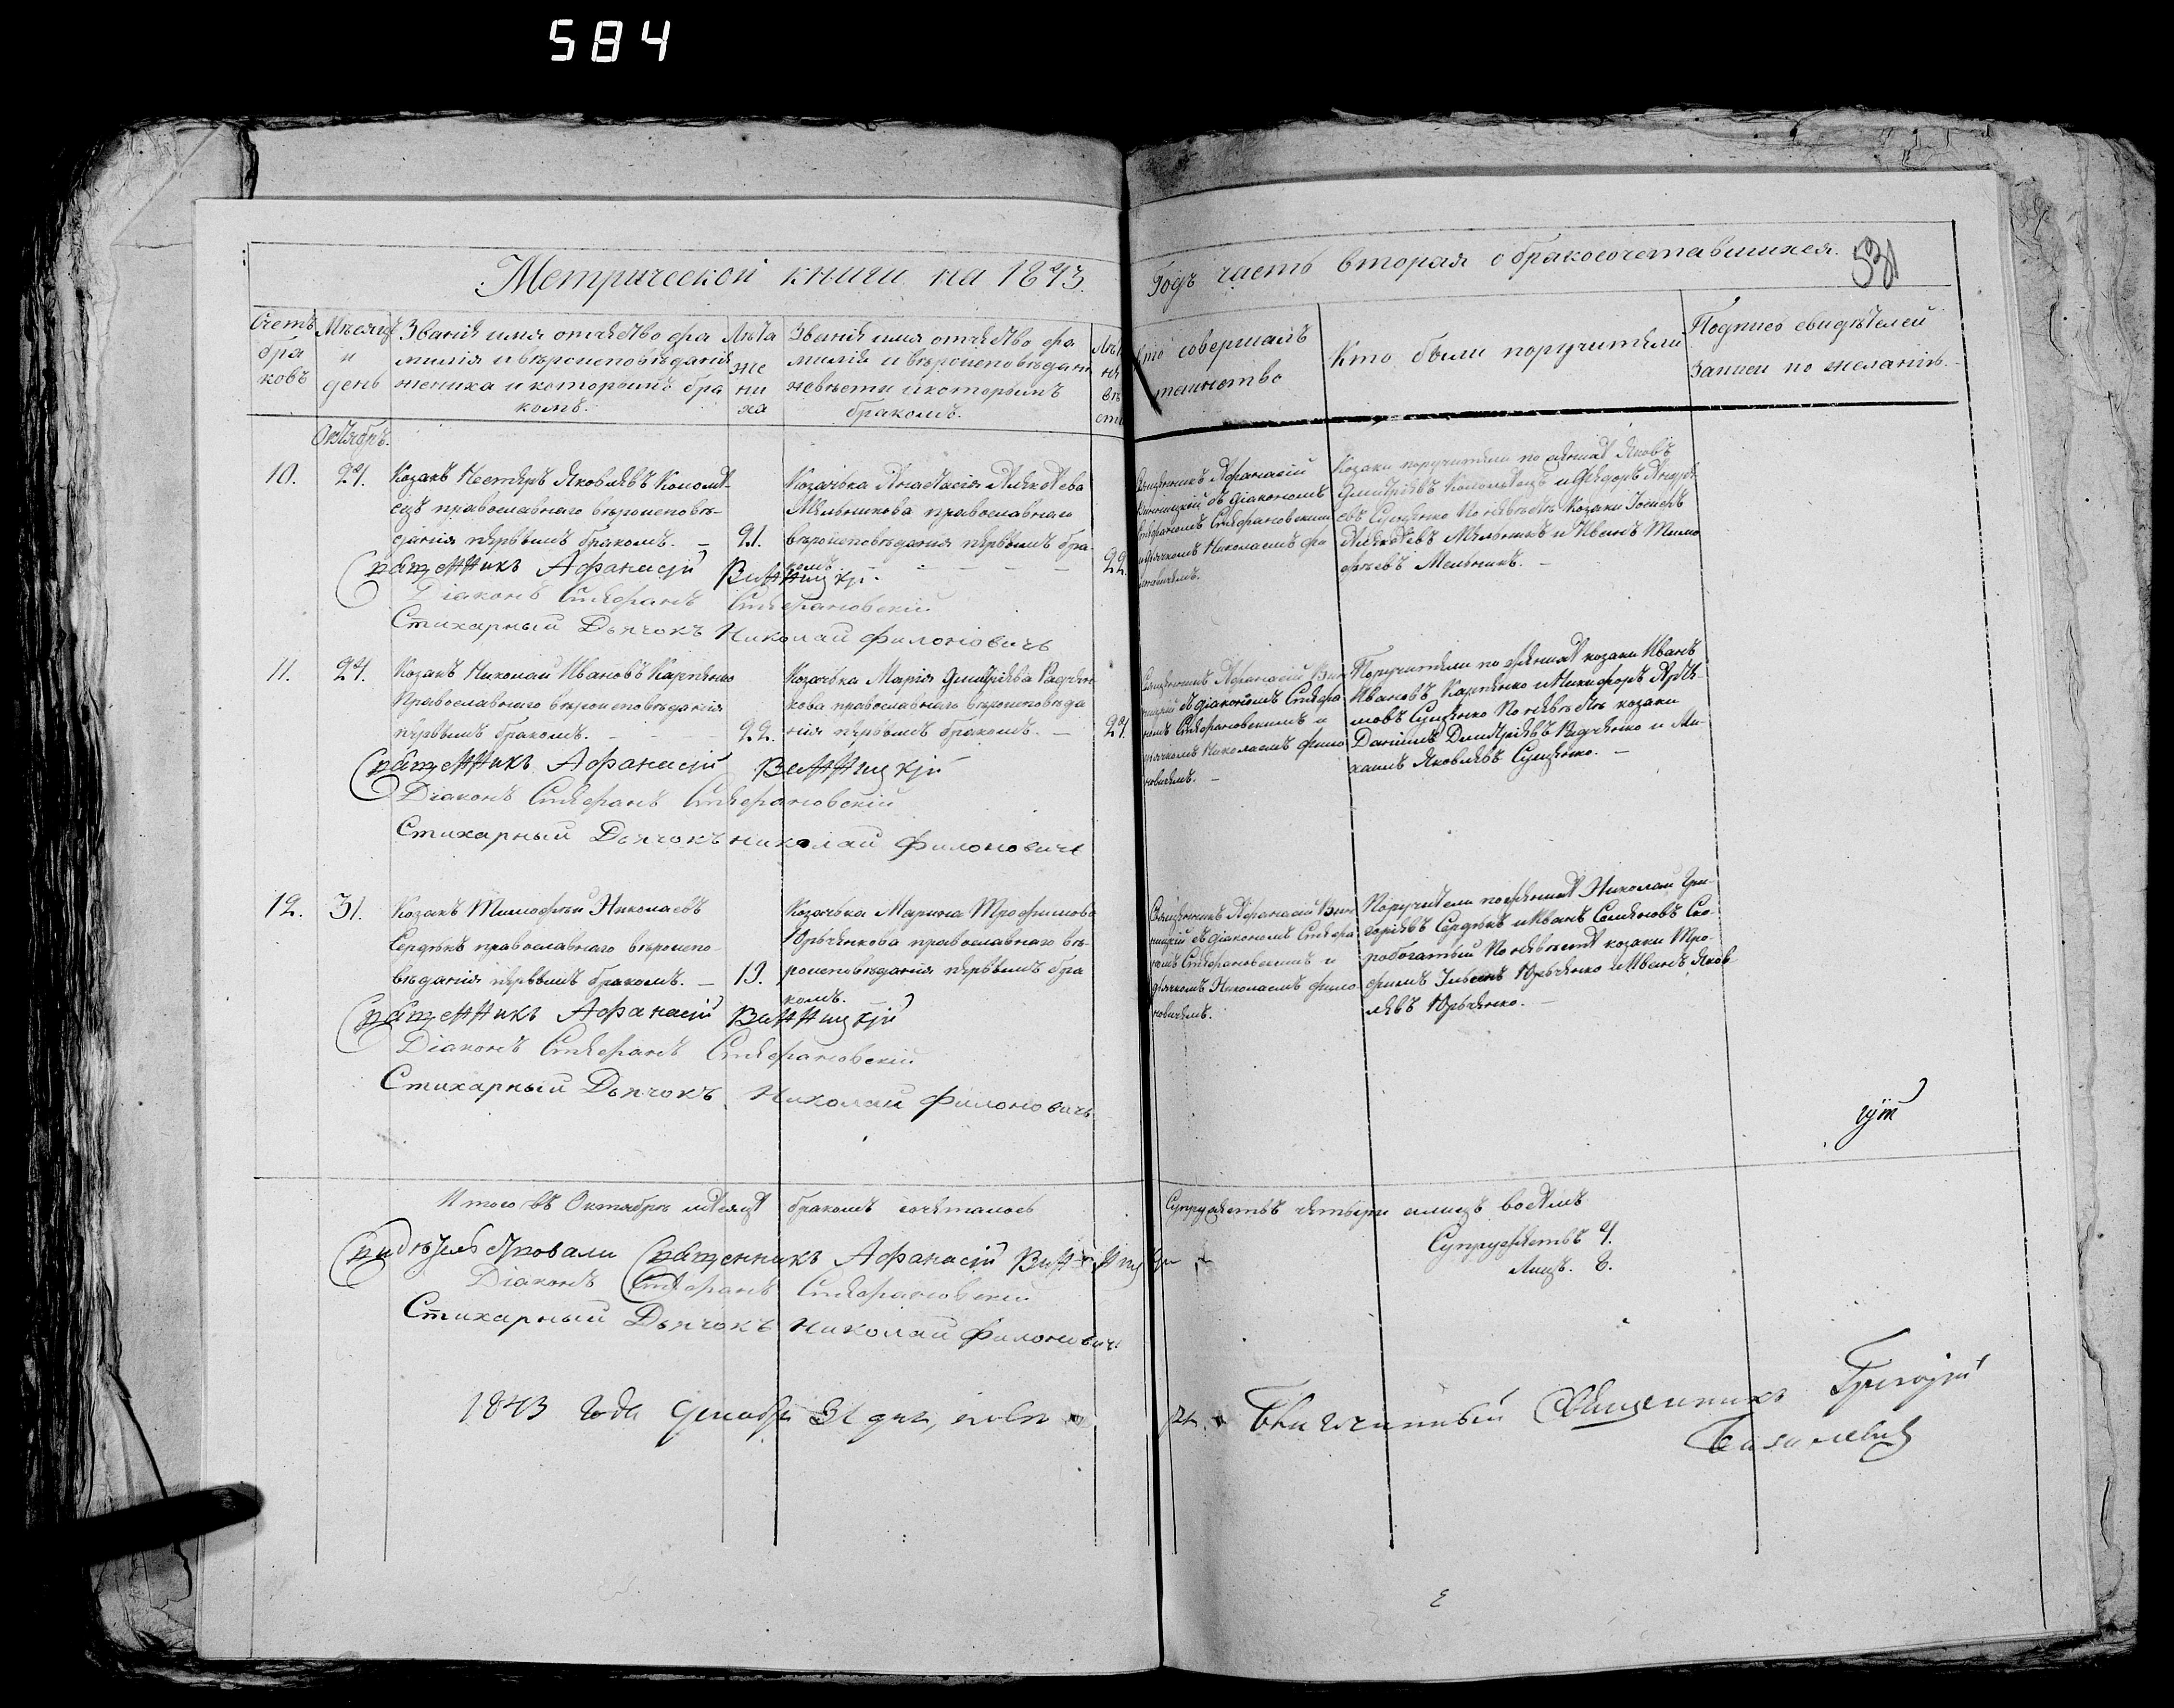 584
Метрической книги на 1843.
Годъ часть вторая о бракосочетавшихся.
531
Счетъ бра ковъ
Мѣсяцъ и день
Званія имя отчество фа
милія и вѣроисповѣданія
жениха и которымъ бра
комъ.
Лѣта же ни ха
Званія имя отчество фа
милія и вѣроисповѣдан
невѣсти и которымъ
бракомъ.
Лѣт не вѣ сти
Кто совершалъ
таинство
Кто были поручители
Подпись свидѣтелей
записи по желанію.
Октябрь.
10.
24.
Козакъ Нестеръ Яковлевъ Колом
ецъ православнаго вѣроисповѣ-
данія первымъ бракомъ. —
21.
Козачька Анастасія Алексѣева
Мельникова православнаго
вѣроисповѣданія первымъ бра
комъ.
22.
Священникъ Афанасій
Винницкій съ діакономъ
Стефаномъ Стефановскимъ
и дьячкомъ Николаемъ Фи
лоновичемъ.
Козаки поручители по женихѣ Яковъ
Дмитріевъ Коломѣецъ и Федоръ Андре
евъ Сущенко По невѣстѣ Козаки Іосифъ
Алексѣевъ Мельникъ и Иванъ Тимо
феевъ Мельникъ. —
Священникъ Афанасій Винницкій
Діаконъ Стефанъ Стефановскій
Стихарный Дьячокъ Николай Филоновичь
11.
24.
Козакъ Николай Ивановъ Карпенко
Православнаго вѣроисповѣданія
первымъ бракомъ. —
22.
Козачька Марія Дмитріева Радчен
кова православнаго вѣроисповѣда
нія первымъ бракомъ. —
21.
Священникъ Афанасій Вин
ницкій съ діакономъ Стефа
номъ Стефановскимъ и
дьячкомъ Николаемъ Фило
новичемъ. —
Поручители по женихѣ козаки Иванъ
Ивановъ Карпенко и Никифоръ Арте-
мовъ Сущенко По невѣстѣ козаки
Даніилъ Дмитріевъ Радченко и Ми-
хаилъ Яковлевъ Сущенко. —
Священникъ Афанасій Винницкій
Діаконъ Стефанъ Стефановскій
Стихарный Дьячокъ николай Филоновичь
12.
31.
Козакъ Тимофей Николаевъ
Сердюкъ православнаго вѣроиспо-
вѣданія первымъ бракомъ. —
19.
Козачька Марина Трофимова
Юрьченкова православнаго вѣ-
роисповѣданія первымъ бра
комъ. —
Священникъ Афанасій Вин
ницкій съ діакономъ Стефа
номъ Стефановскимъ и
дьячкомъ Николаемъ Фило
новичемъ.
Поручители по женихѣ Николай Гри-
горіевъ Сердюкъ и Иванъ Семеновъ Ско-
робогатый По невѣстѣ козаки Тро-
фимъ Ильинъ Юрьченко и Иванъ Яков
левъ Юрьченко. —
Священникъ Афанасій Винницкій
Діаконъ Стефанъ Стефановскій
Стихарный Дьячокъ Николай Филоновичь
Итого въ Октябрѣ мѣсяцѣ бракомъ сочеталось
Супружествъ четыри а лицъ восѣмъ
Супружествъ 4.
Лицъ. 8.
Свидѣтельствовали Священникъ Афанасій Винницкій
Діаконъ Стефанъ Стефановскій
Стихарный Дьячокъ николай Филоновичь
1843 года Декабря 31 дня,
Благочинный Священникъ Григорій
Базилевичъ